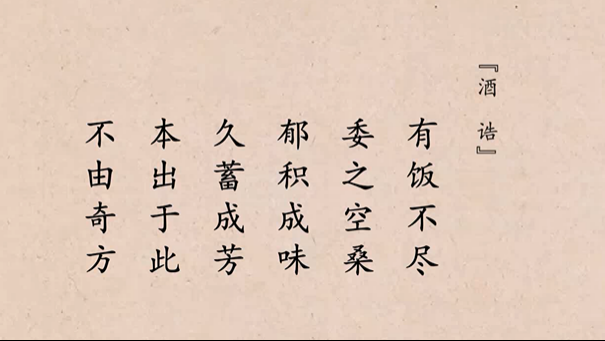 『酒诰』
有饭不尽
委之空桑
郁积成味
久蓄成芳
本出于此
不由奇方